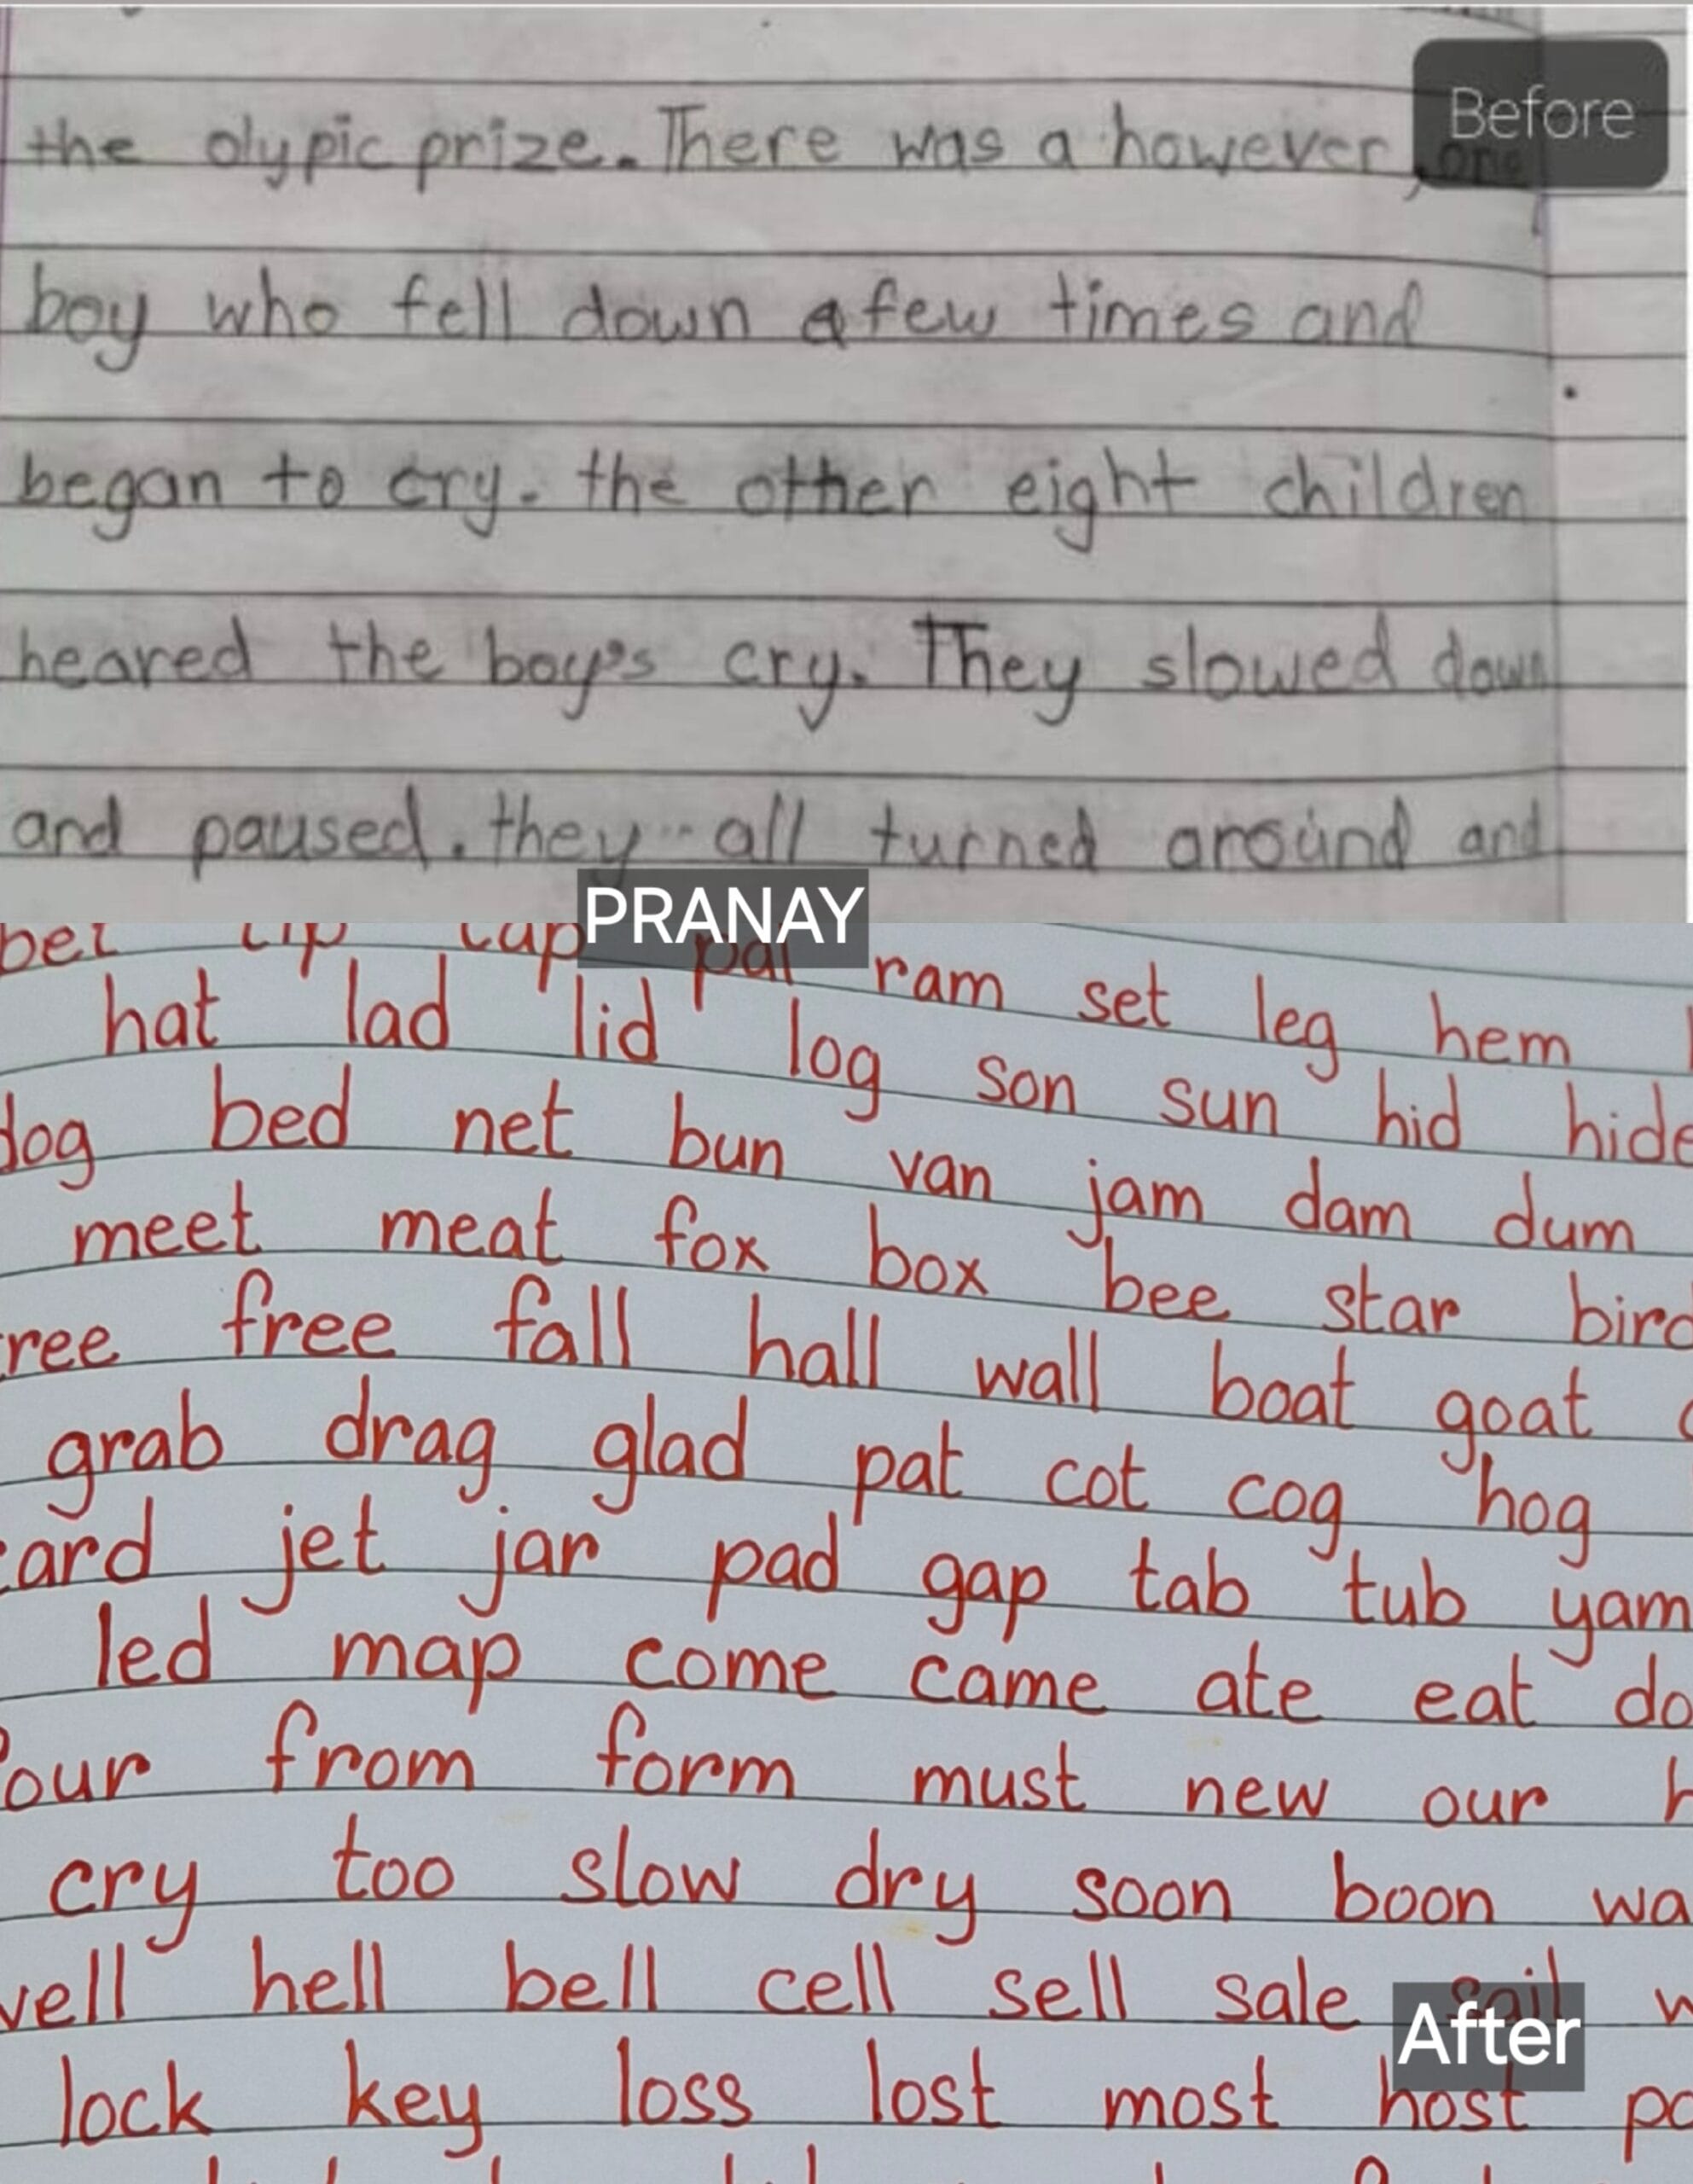 Before
the olypic prize. There was a however, one
boy who fell down a few times and
began to cry. the other eight children
heared the boy's cry. They slowed down
and paused. they all turned around and
PRANAY
pal ram set leg hem
hat lad lid log son sun hid hide
dog bed net bun van jam dam dum
meet meat fox box bee star bird
ree free fall hall wall boat goat
grab drag glad pat cot cog hog
card jet jar pad gap tab tub yam
led map come came ate eat do
our from form must new our h
cry too slow dry soon boon wa
vell hell bell cell sell sale sail w
After
lock key loss lost most host po